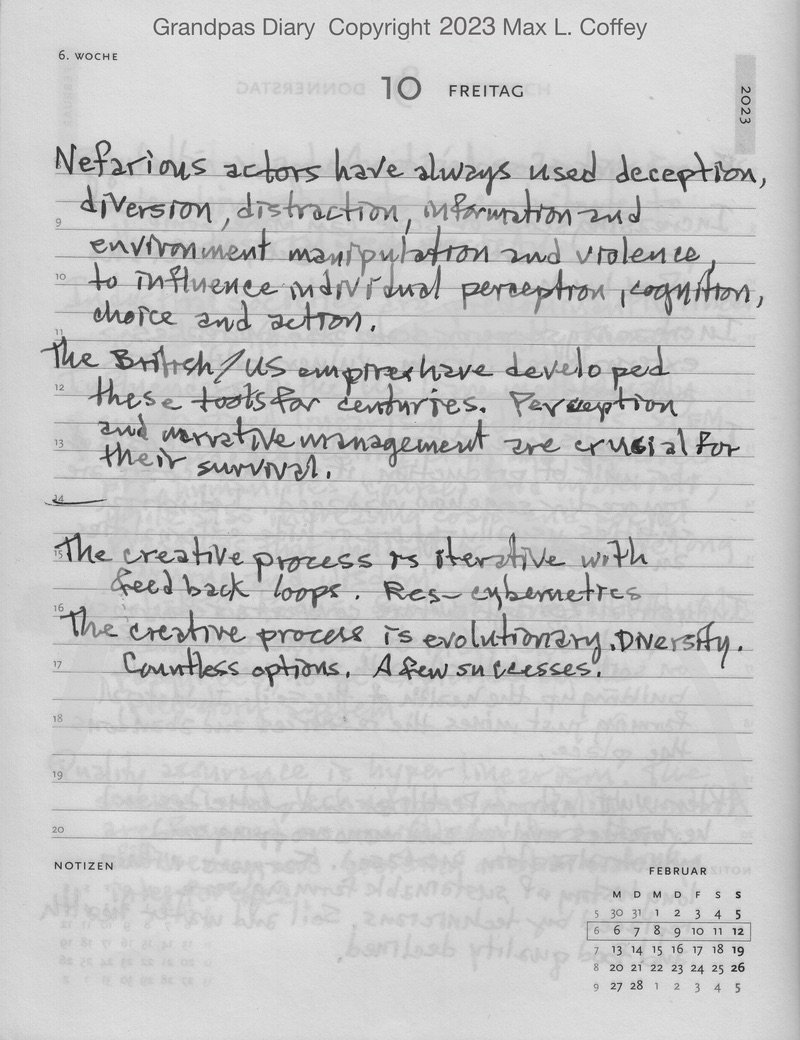 Grandpas Diary Copyright 2023 Max L. Coffey
6. WOCHE
10 FREITAG
2023
Nefarious actors have always used deception,
diversion, distraction, information and
9
environment manipulation and violence,
10
to influence individual perception, cognition,
choice and action.
11
The British/US empires have developed
12
these tools for centuries. Perception
13
and narrative management are crucial for
their survival.
14
15
The creative process is iterative with
feedback loops. Res- cybernetics
16
The creative process is evolutionary. Diversity.
17
Countless options. A few successes.
18
19
20
NOTIZEN
FEBRUAR
M D M D F S S
5 30 31 1 2 3 4 5
6 6 7 8 9 10 11 12
7 13 14 15 16 17 18 19
8 20 21 22 23 24 25 26
9 27 28 1 2 3 4 5